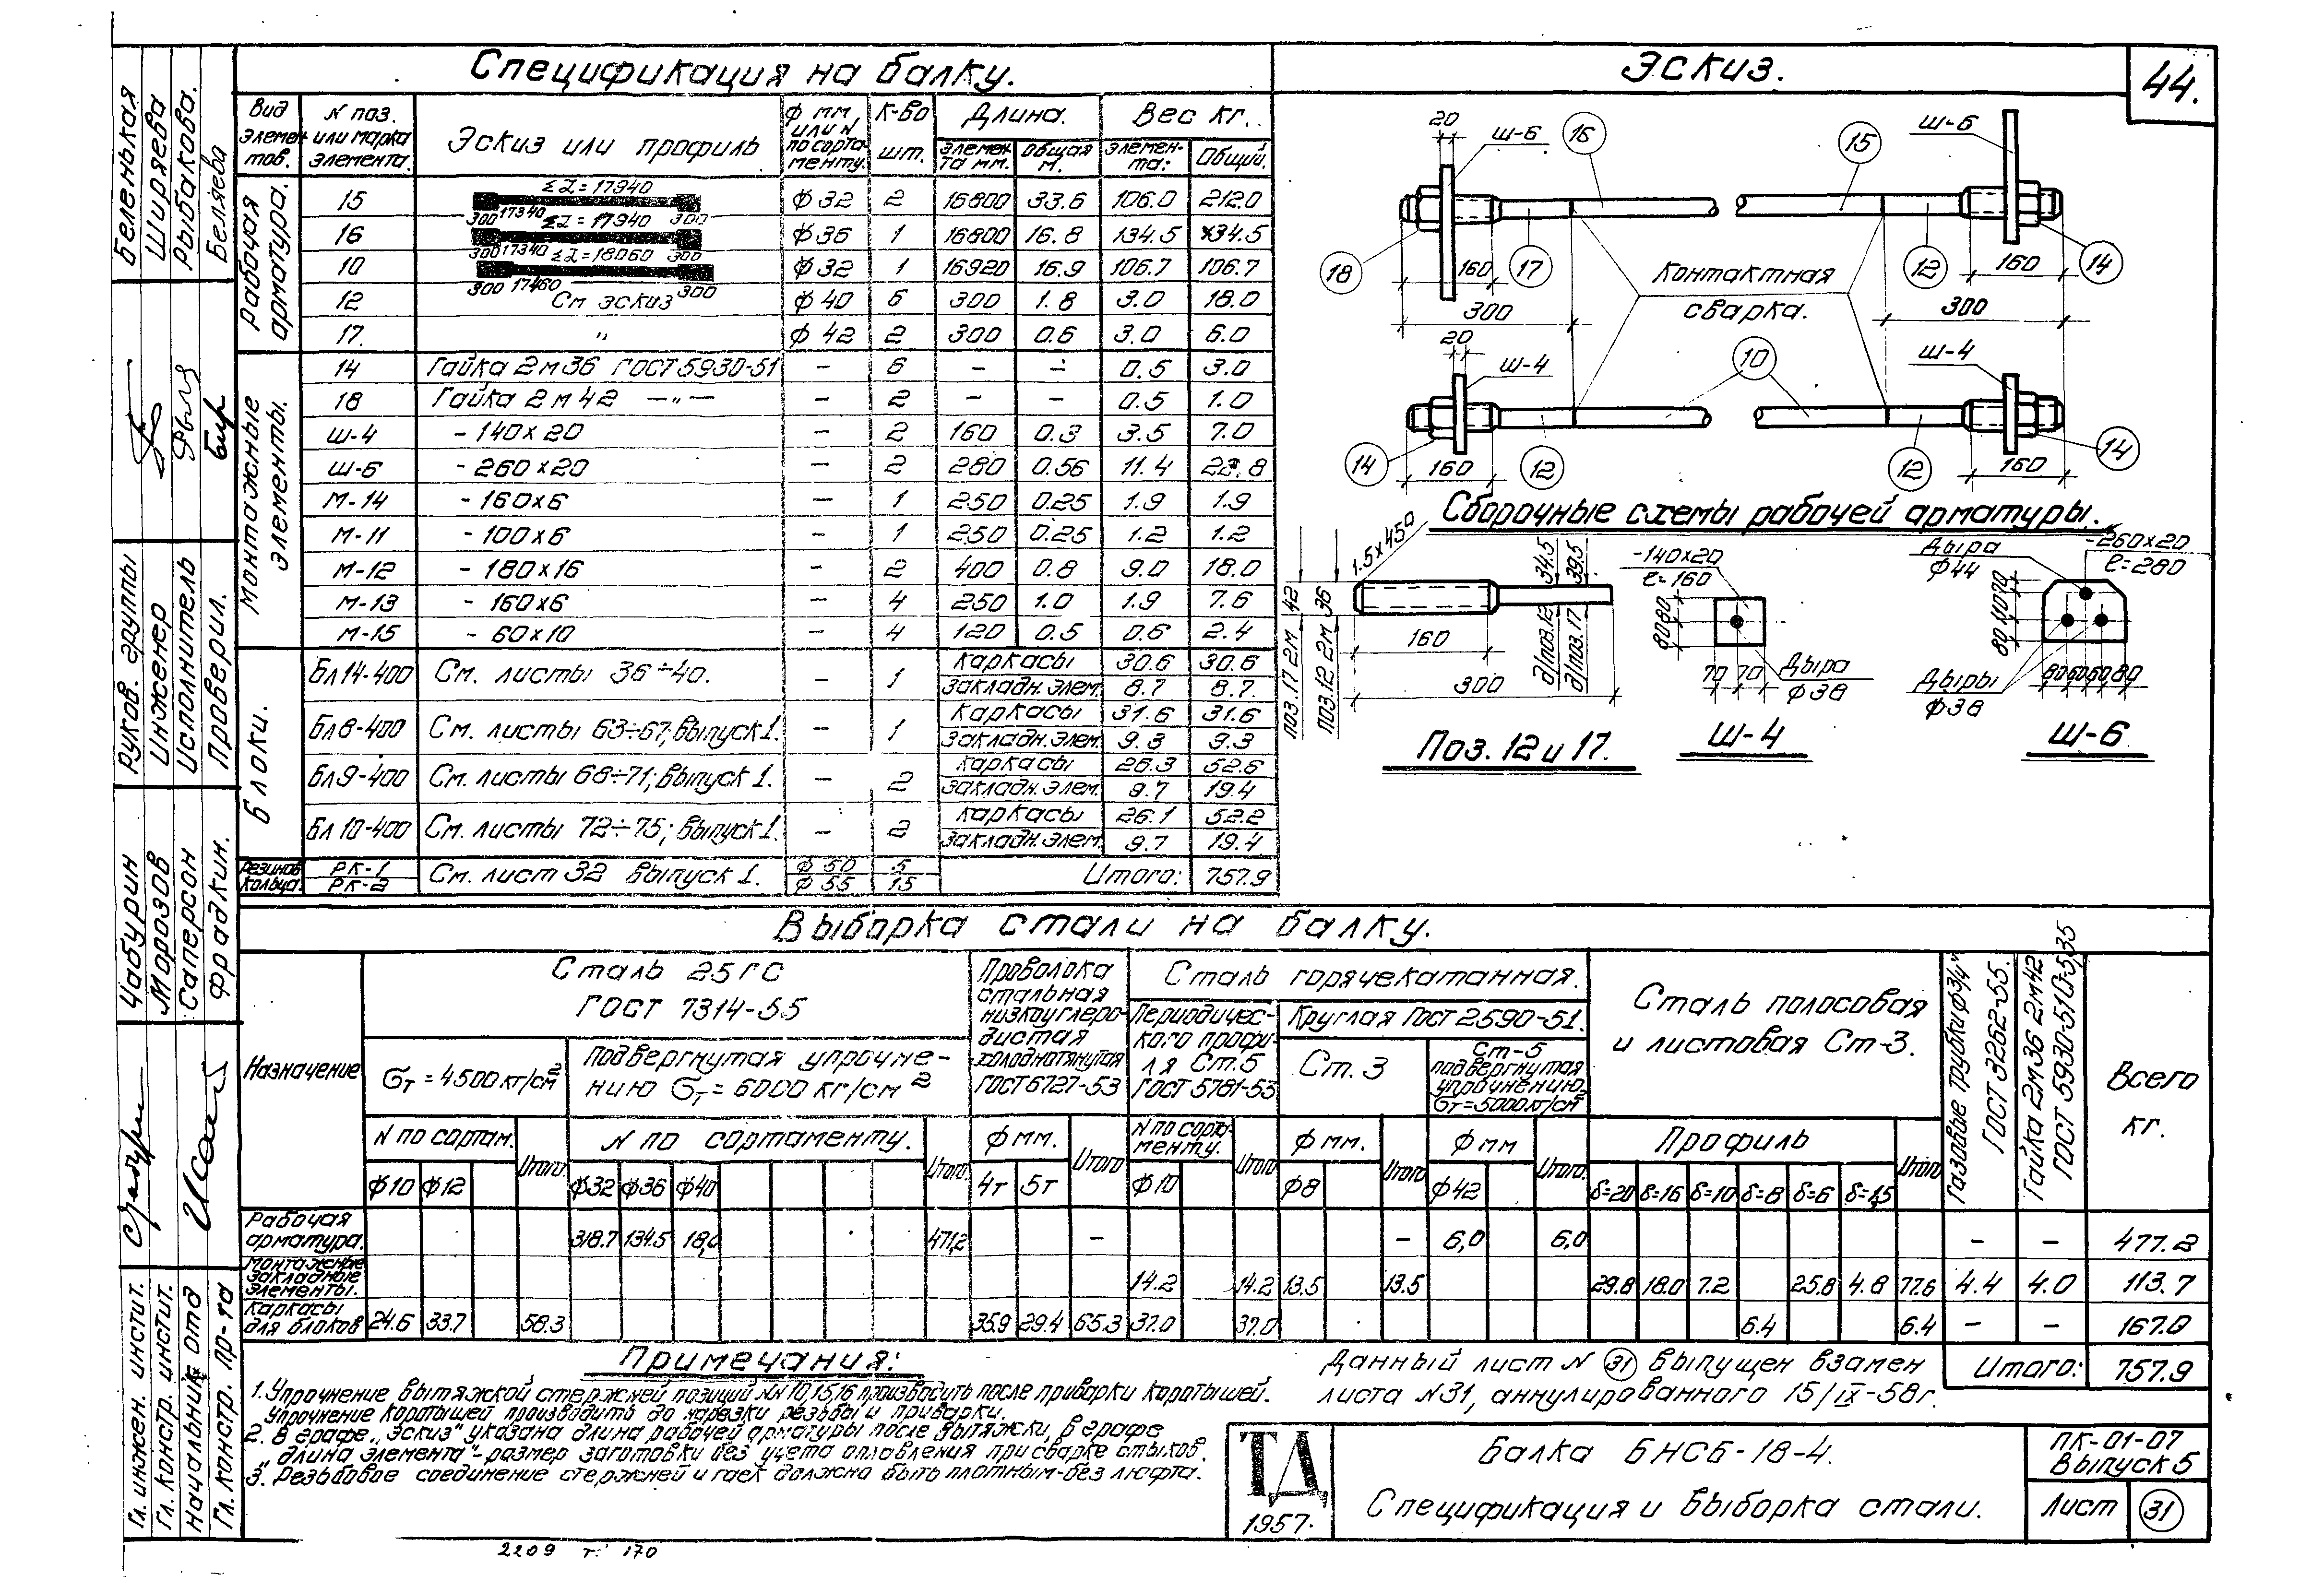 44.
Спецификация на балку.
Эскиз.
Вид элементов.
N поз. или марка элемента.
Эскиз или профиль
ф мм или N по сортаменту.
К-во шт.
Длина.
элемента мм.
общая м.
Вес кг.
элемента:
Общий.
Рабочая арматура.
15 Σℓ=17940 300 17340 300 ф32 2 16800 33.6 106.0 212.0
16 Σℓ=17940 300 17340 300 ф36 1 16800 16.8 134.5 134.5
10 Σℓ=18060 300 17460 300 ф32 1 16920 16.9 106.7 106.7
12 См эскиз ф40 6 300 1.8 3.0 18.0
17. " ф42 2 300 0.6 3.0 6.0
Монтажные элементы.
14 Гайка 2м36 ГОСТ 5930-51 – 6 – – 0.5 3.0
18 Гайка 2м42 –"– – 2 – – 0.5 1.0
Ш-4 -140×20 – 2 160 0.3 3.5 7.0
Ш-6 -260×20 – 2 280 0.56 11.4 22.8
М-14 -160×6 – 1 250 0.25 1.9 1.9
М-11 -100×6 – 1 250 0.25 1.2 1.2
М-12 -180×16 – 2 400 0.8 9.0 18.0
М-13 -160×6 – 4 250 1.0 1.9 7.6
М-15 -60×10 – 4 120 0.5 0.6 2.4
Блоки.
Бл14-400 См. листы 36÷40. – 1 каркасы 30.6 30.6
закладн.элем. 8.7 8.7.
Бл8-400 См. листы 63÷67; выпуск 1. – 1 каркасы 31.6 31.6
закладн.элем. 9.3 9.3
Бл9-400 См. листы 68÷71; выпуск 1. – 2 каркасы 26.3 52.6
закладн.элем. 9.7 19.4
Бл10-400 См. листы 72÷75; выпуск 1. – 2 каркасы 26.1 52.2
закладн.элем. 9.7 19.4
Резинов. кольца.
РК-1 См. лист 32 выпуск 1. ф50 5
РК-2 ф55 15
Итого: 757.9
20 Ш-6 16 15 Ш-6
18 160 17 Контактная сварка. 12 160 14
300 300
20 Ш-4 10 Ш-4
14 160 12 12 160 14
Сборочные схемы рабочей арматуры.
поз.17 2м 42
поз.12 2м 36
1.5×45°
160
300
д/поз.12 34.5
д/поз.17 39.5
Поз. 12 и 17.
-140×20
ℓ=160
80 80
70 70
Дыра ф38
Ш-4
Дыра ф44
-260×20
ℓ=280
80 110 70
80 60 60 80
Дыры ф38
Ш-6
Выборка стали на балку.
Назначение
Сталь 25ГС
ГОСТ 7314-55
σт=4500кг/см²
подвергнутая упрочнению σт=6000кг/см²
Проволока стальная низкоуглеродистая холоднотянутая ГОСТ 6727-53
Сталь горячекатанная.
Периодического профиля Ст.5 ГОСТ 5781-53
Круглая ГОСТ 2590-51.
Ст.3
Ст-5 подвергнутая упрочнению σт=5000кг/см²
Сталь полосовая и листовая Ст-3.
Газовые трубки ф3/4" ГОСТ 3262-55.
Гайка 2м36 2м42
Всего кг.
N по сортам. Итого. N по сортаменту. Итого. ф мм. Итого N по сортаменту. Итого ф мм. Итого ф мм Итого. Профиль Итого
ф10 ф12 ф32 ф36 ф40 4т 5т ф10 ф8 ф42 δ=20 δ=16 δ=10 δ=8 δ=6 δ=1,5
Рабочая арматура. 318.7 134.5 18,0 471,2 – – 6,0 6,0 – – 477.2
Монтажные закладные элементы. 14.2 14.2 13.5 13.5 29.8 18.0 7.2 25.8 4.8 77.6 4.4 4.0 113.7
Каркасы для блоков 24.6 33.7 58.3 35.9 29.4 65.3 37.0 37.0 6.4 6.4 – – 167.0
Итого: 757.9
Примечания:
1. Упрочнение вытяжкой стержней позиций NN 10,15,16 производить после приварки коротышей.
Упрочнение коротышей производить до нарезки резьбы и приварки.
2. В графе „Эскиз" указана длина рабочей арматуры после вытяжки, в графе
„длина элемента"-размер заготовки без учета оплавления при сварке стыков.
3. Резьбовое соединение стержней и гаек должно быть плотным-без люфта.
Данный лист N 31 выпущен взамен
листа N31, аннулированного 15/IX-58г.
ТД
1957.
Балка БНСБ-18-4.
Спецификация и выборка стали.
ПК-01-07
Выпуск 5
Лист 31
Беленькая
Ширяева
Рыбакова.
Беляева
Руков. группы
Инженер
Исполнитель
Проверил.
Чабурин
Морозов
Саперсон
Фрадкин.
Гл. инжен. инстит.
Гл. констр. инстит.
Начальник отд
Гл. констр. пр-та
2209 т. 170